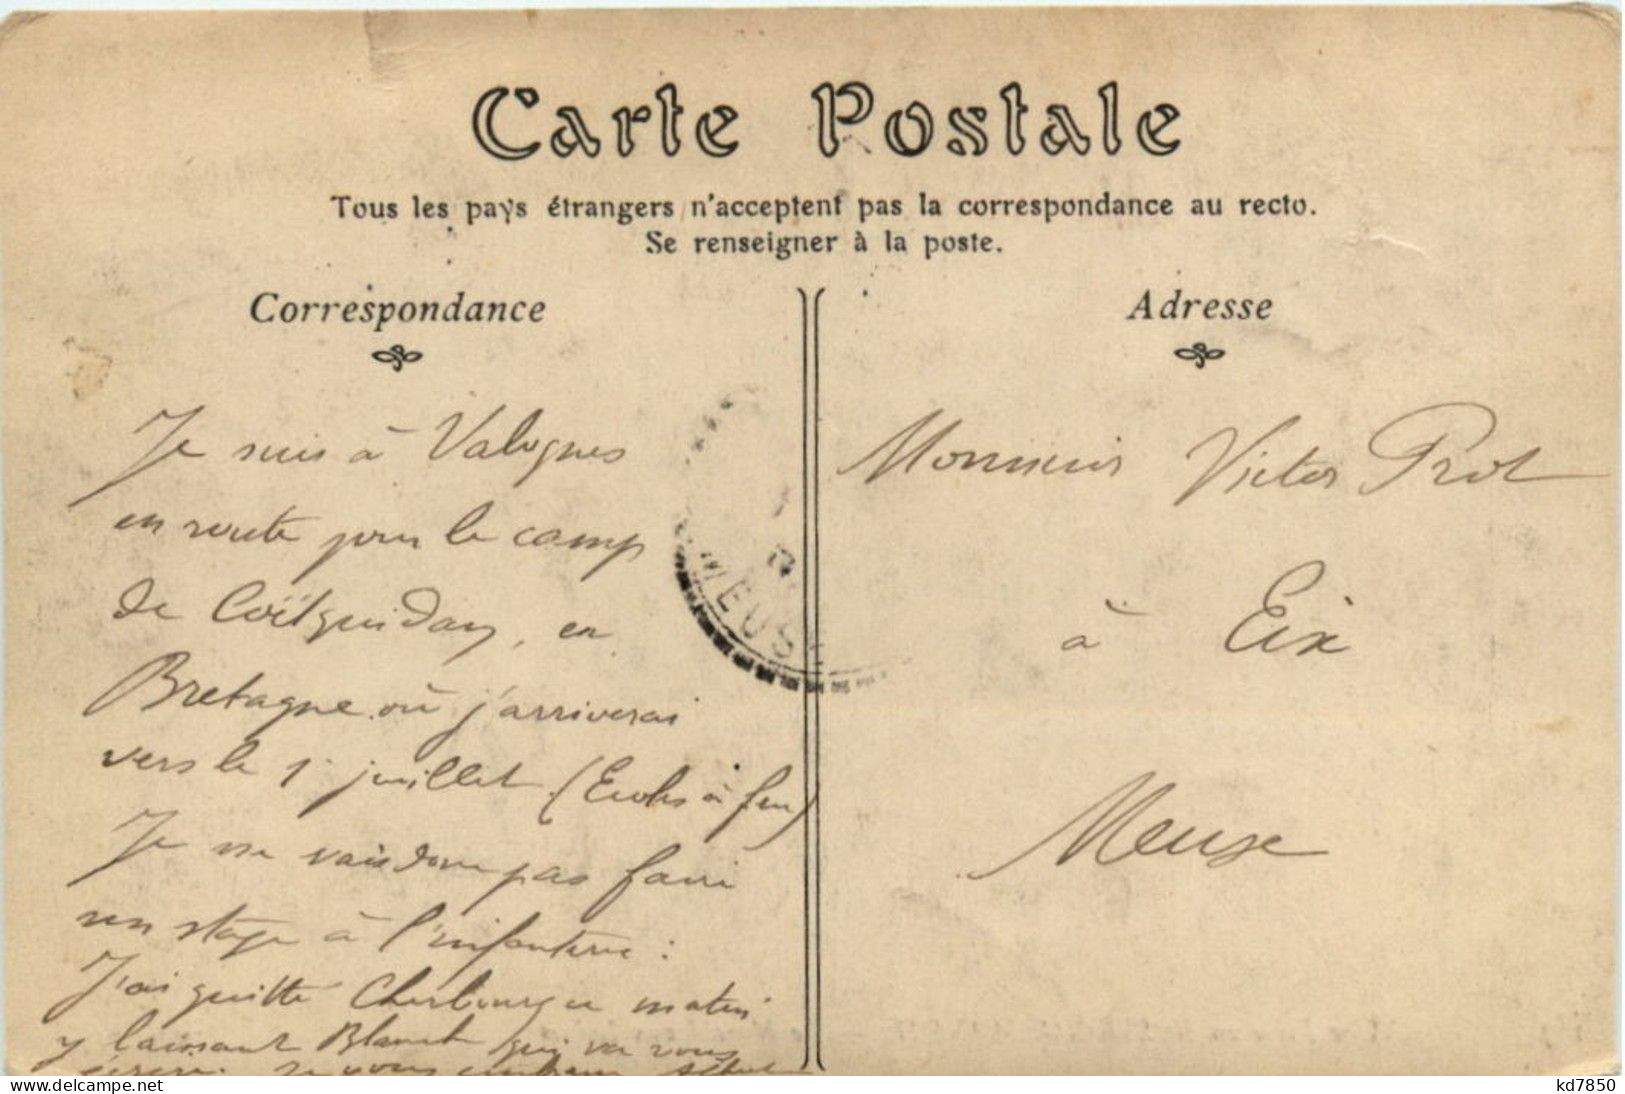 Carte Postale
Tous les pays étrangers n'acceptent pas la correspondance au recto.
Se renseigner à la poste.
Correspondance
Je suis à Valognes
en route pour le camp
de Coëtquidan, en
Bretagne où j'arriverai
vers le 1er juillet (Ecoles à feu)
Je ne vais donc pas faire
un stage à l'infanterie :
J'ai quitté Cherbourg ce matin
y laissant Blanche qui va vous
écrire. Je vous embrasse
Adresse
Monsieur Victor Prot
à Eix
Meuse
MEUSE
delcampe.net
kd7850